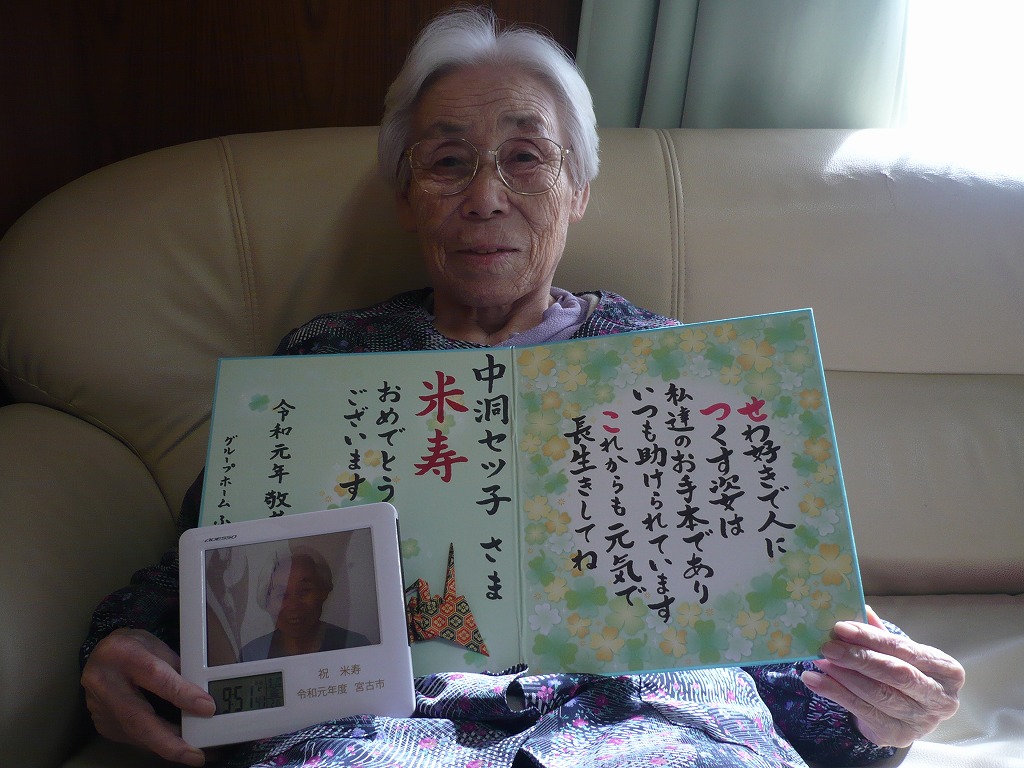 せわ好きで人に
つくす姿は
私達のお手本であり
いつも助けられています
これからも元気で
長生きしてね
中洞セツ子 さま
米寿
おめでとう
ございます
令和元年 敬
グループホーム ふ
ADESSO
祝 米寿
令和元年度 宮古市